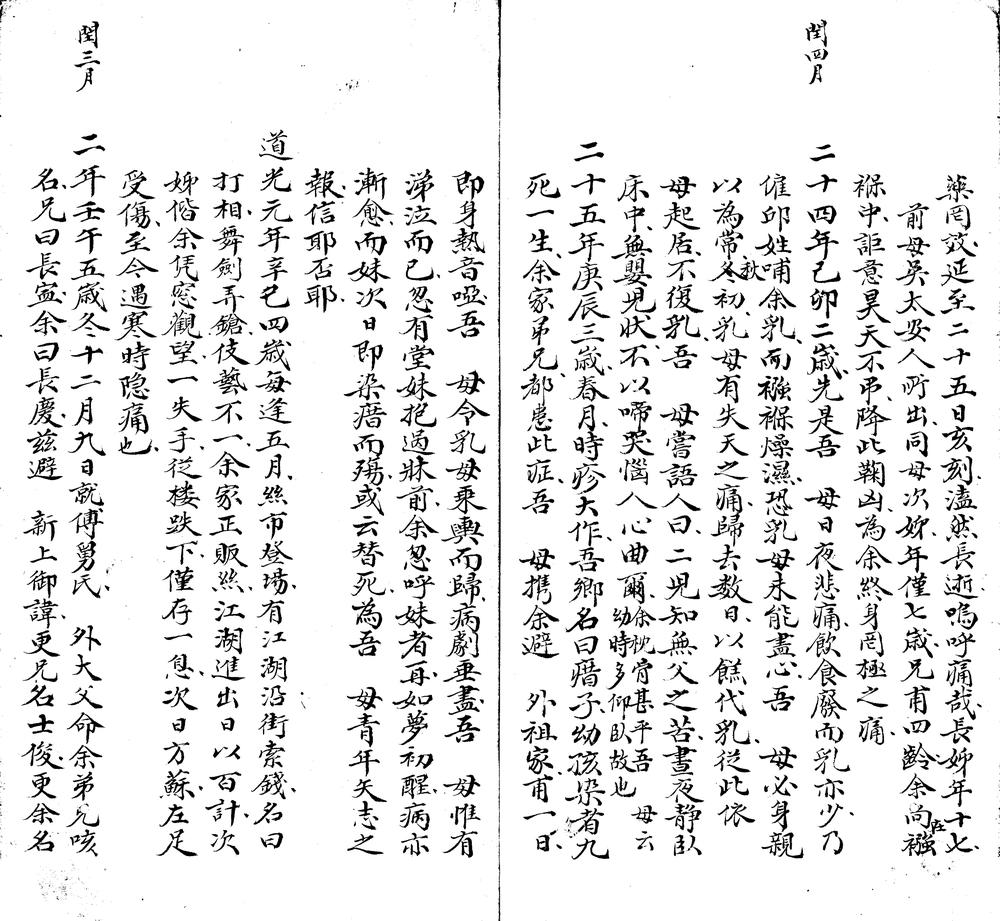 閏四月
藥罔效延至二十五日亥刻溘然長逝嗚呼痛哉長姊年十七
前母吳太安人所出同母次姊年僅七歲兄甫四齡余尚在襁
褓中詎意昊天不弔降此鞠凶為余終身罔極之痛
二十四年己卯二歲先是吾 母日夜悲痛飲食廢而乳亦少乃
僱邱姓哺余乳而襁褓燥濕恐乳母未能盡心吾 母必身親
以為常秋冬初乳母有失天之痛歸去数日以餻代乳從此依
母起居不復乳吾 母嘗語人曰二児知無父之苦晝夜静臥
床中無嬰児状不以啼哭惱人心曲爾余枕骨甚平吾 母云幼時多仰臥故也
二十五年庚辰三歲春月時疹大作吾鄉名曰瘄子幼孩染者九
死一生余家弟兄都患此症吾 母携余避 外祖家甫一日
閏三月
即身熱音啞吾 母令乳母乘輿而歸病劇垂盡吾 母惟有
涕泣而已忽有堂妹抱過牀前余忽呼妹者再如夢初醒病亦
漸愈而妹次日即染瘄而殤或云替死為吾 母青年矢志之
報信耶否耶
道光元年辛巳四歲每逢五月絲市登場有江湖沿街索錢名曰
打相舞劍弄鎗伎藝不一余家正販絲江湖進出日以百計次
姊偕余凭窓觀望一失手從楼跌下僅存一息次日方蘇左足
受傷至今遇寒時隐痛也
二年壬午五歲冬十二月九日就傅舅氏 外大父命余弟兄咳
名兄曰長寍余曰長慶茲避 新上御諱更兄名士俊更余名